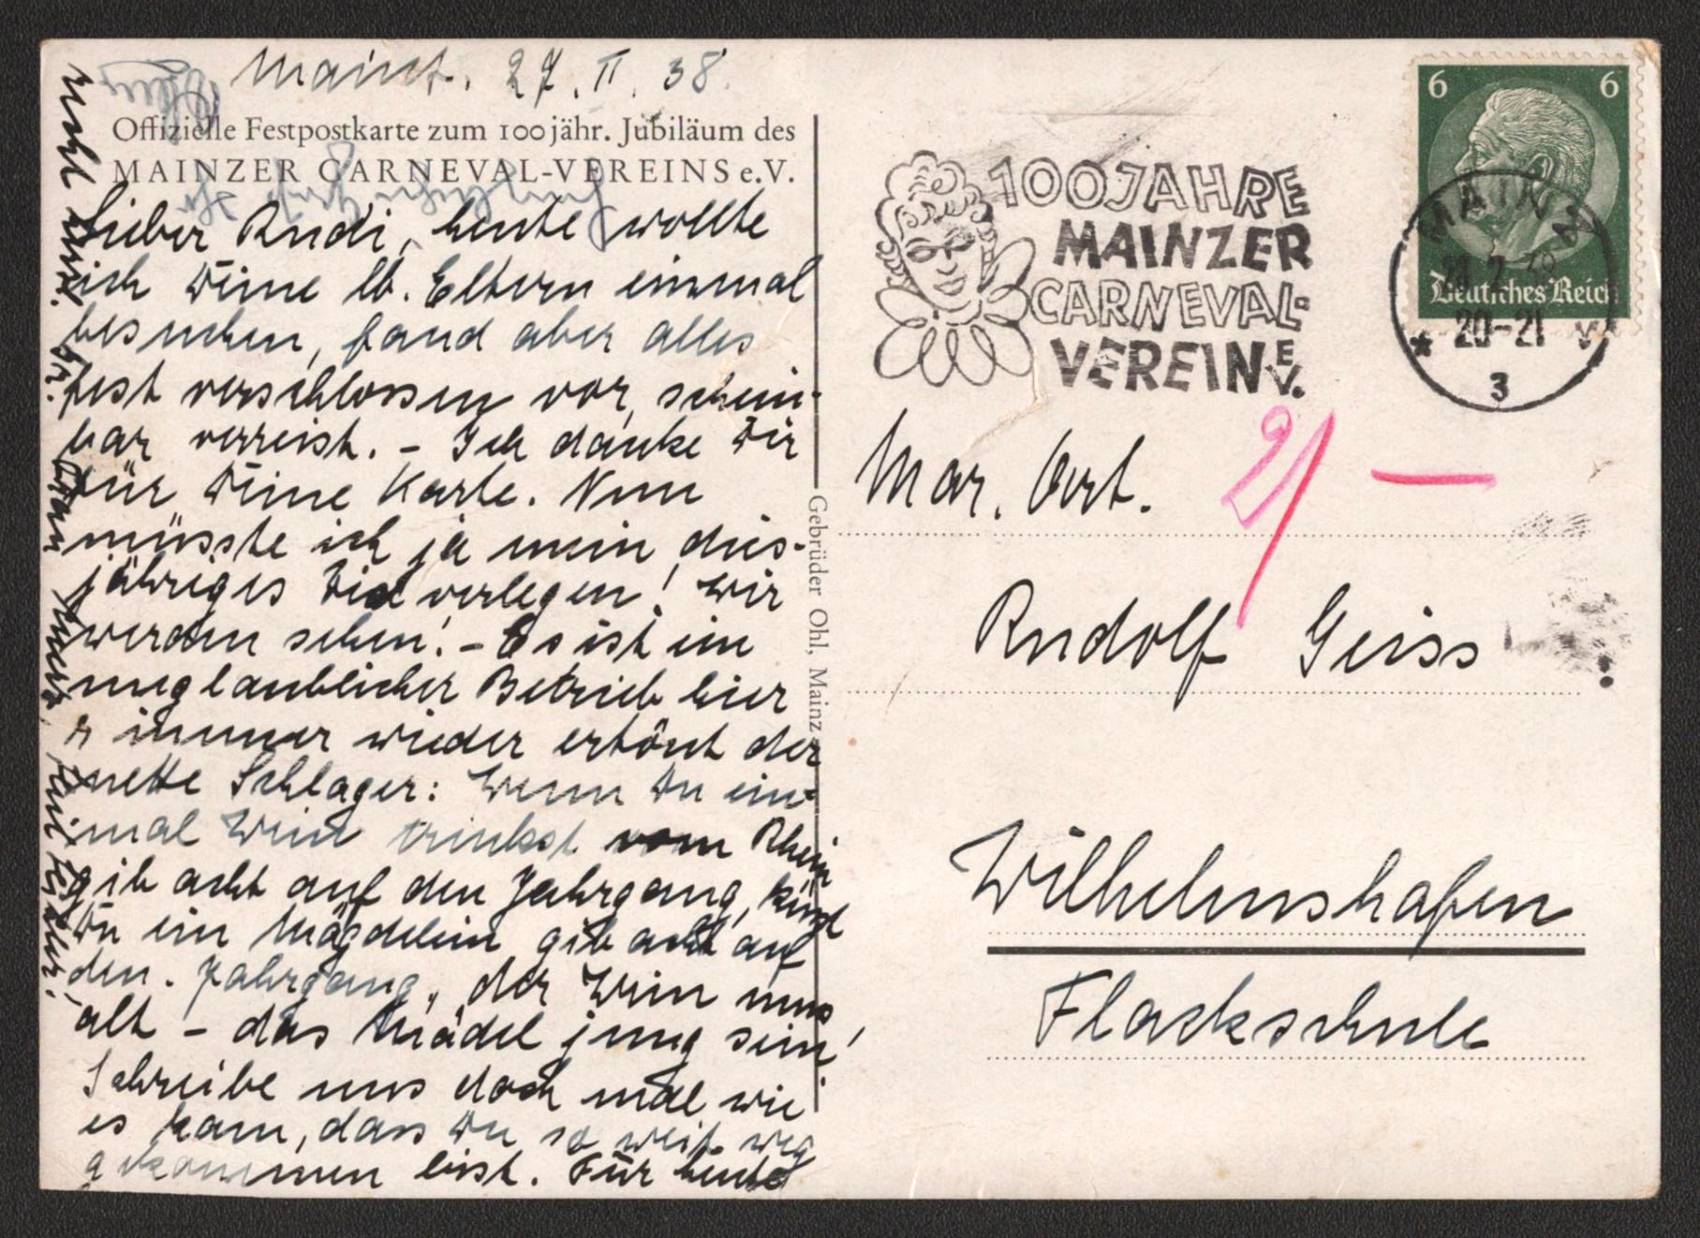 Mainz, 27. II. 38.
Offizielle Festpostkarte zum 100jähr. Jubiläum des
MAINZER CARNEVAL-VEREINS e.V.
Lieber Rudi, heute wollte
ich Deine lb. Eltern einmal
besuchen, fand aber alles
fest verschlossen vor, schein-
bar verreist. - Ich danke Dir
für Deine Karte. Nun
müsste ich ja mein dies-
jähriges verlegen! Wir
werden sehen! - Es ist ein
unglaublicher Betrieb hier
u immer wieder ertönt der
nette Schlager: Wenn Du ein-
mal Wein trinkst vom Rhein
gib acht auf den Jahrgang,
Du ein Mägdelein gib acht auf
den Jahrgang, der Wein muss
alt - das Mädel jung sein!
Schreibe uns doch mal wie
es kam, dass Du so weit weg
gekommen bist. Für heute
Gebrüder Ohl, Mainz
100 JAHRE
MAINZER
CARNEVAL-
VEREIN E.V.
6 6
Deutsches Reich
MAINZ
20-21
3
Mar. Art. 2/ —
Rudolf Geiss
Wilhelmshafen
Flackschule